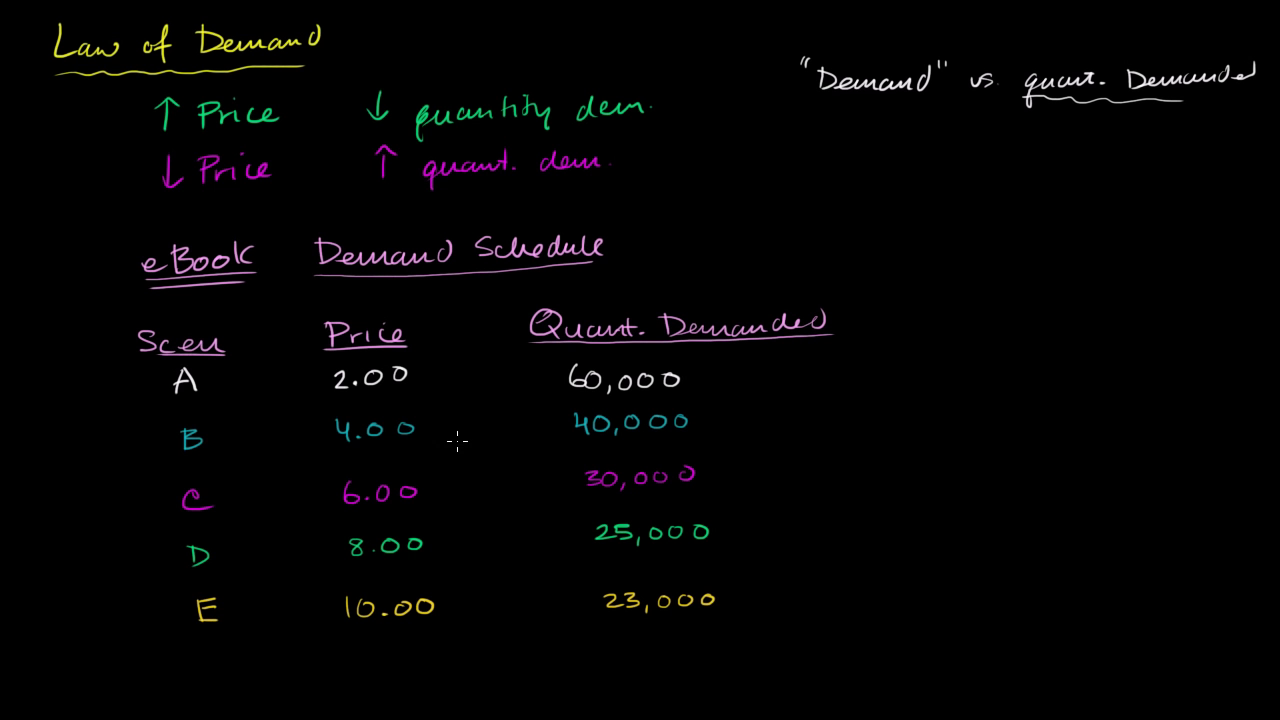 Law of Demand
"Demand" vs. quant. Demanded
↑ Price ↓ quantity dem.
↓ Price ↑ quant. dem.
eBook Demand Schedule
Scen Price Quant. Demanded
A 2.00 60,000
B 4.00 40,000
C 6.00 30,000
D 8.00 25,000
E 10.00 23,000